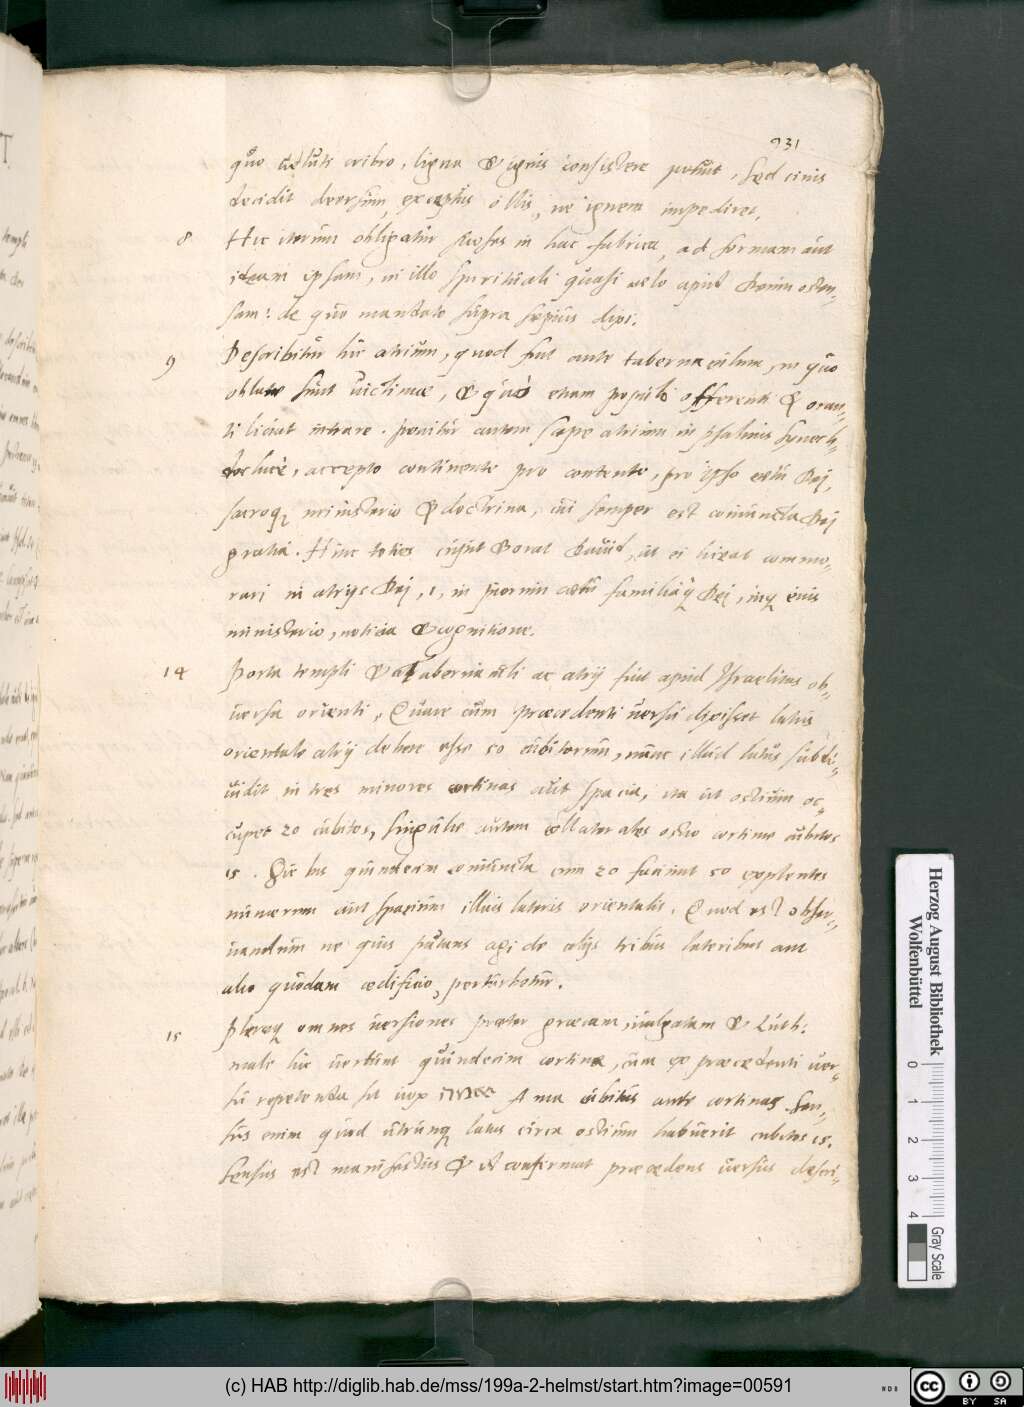 931
quo veluti cribro, ligna & ignis consistere potuit, sed cinis
decidit deorsum exceptus ollis, ne ignem impediret.
8 Hic iterum obligatur Moses in hac fabrica, ad formam aut
ideam ipsam, in illo spirituali quasi caelo apud Deum osten„
sam: de quo mandato supra saepius dixi.
9 Describitur hic atrium, quod fuit ante tabernaculum, in quo
oblatae sunt victimae, & quò etiam populo offerenti & oran„
ti licuit intrare. ponitur autem saepe atrium in psalmis synech„
dochicè, accepto continente pro contento, pro ipso coetu Dei,
sacroq; ministerio & doctrina, cui semper est coniuncta Dei
gratia. Hinc toties cupit & orat David, ut ei liceat commo„
rari in atrijs Dei, .i. in vero coetu familiaq; Dei, inq; eius
ministerio, noticia & cognitione.
14 Porta templi & Tabernaculi ac atrij fuit apud Israelitas ob„
versa orienti, Quare cum praecedenti versu dixisset latus
orientale atrij debere esse 50 cubitorum, nunc illud latus subdi„
vidit in tres minores cortinas aut spacia, ita ut ostium oc„
cupet 20 cubitos, singulae autem collaterales ostio cortinae cubitos
15. Sic bis quindecim coniuncta cum 20 faciunt 50 explentes
numerum aut spacium illius lateris orientalis. Quod est obser„
vandum ne quis putans agi de alijs tribus lateribus aut
alio quodam aedificio, perturbetur.
15 Pleraeq; omnes versiones praeter graecam, vulgatam & Luth:
male hic vertunt quindecim cortinae, cum ex praecedenti ver„
su repetenda sit vox Ama cubitus ante cortinas. Sen„
sus enim quod utrunq; latus circa ostium habuerit cubitos 15.
Sensus est manifestus & confirmat praecedens versus descri„
Herzog August Bibliothek
Wolfenbüttel
0 1 2 3 4
Gray Scale
(c) HAB http://diglib.hab.de/mss/199a-2-helmst/start.htm?image=00591
cc BY SA